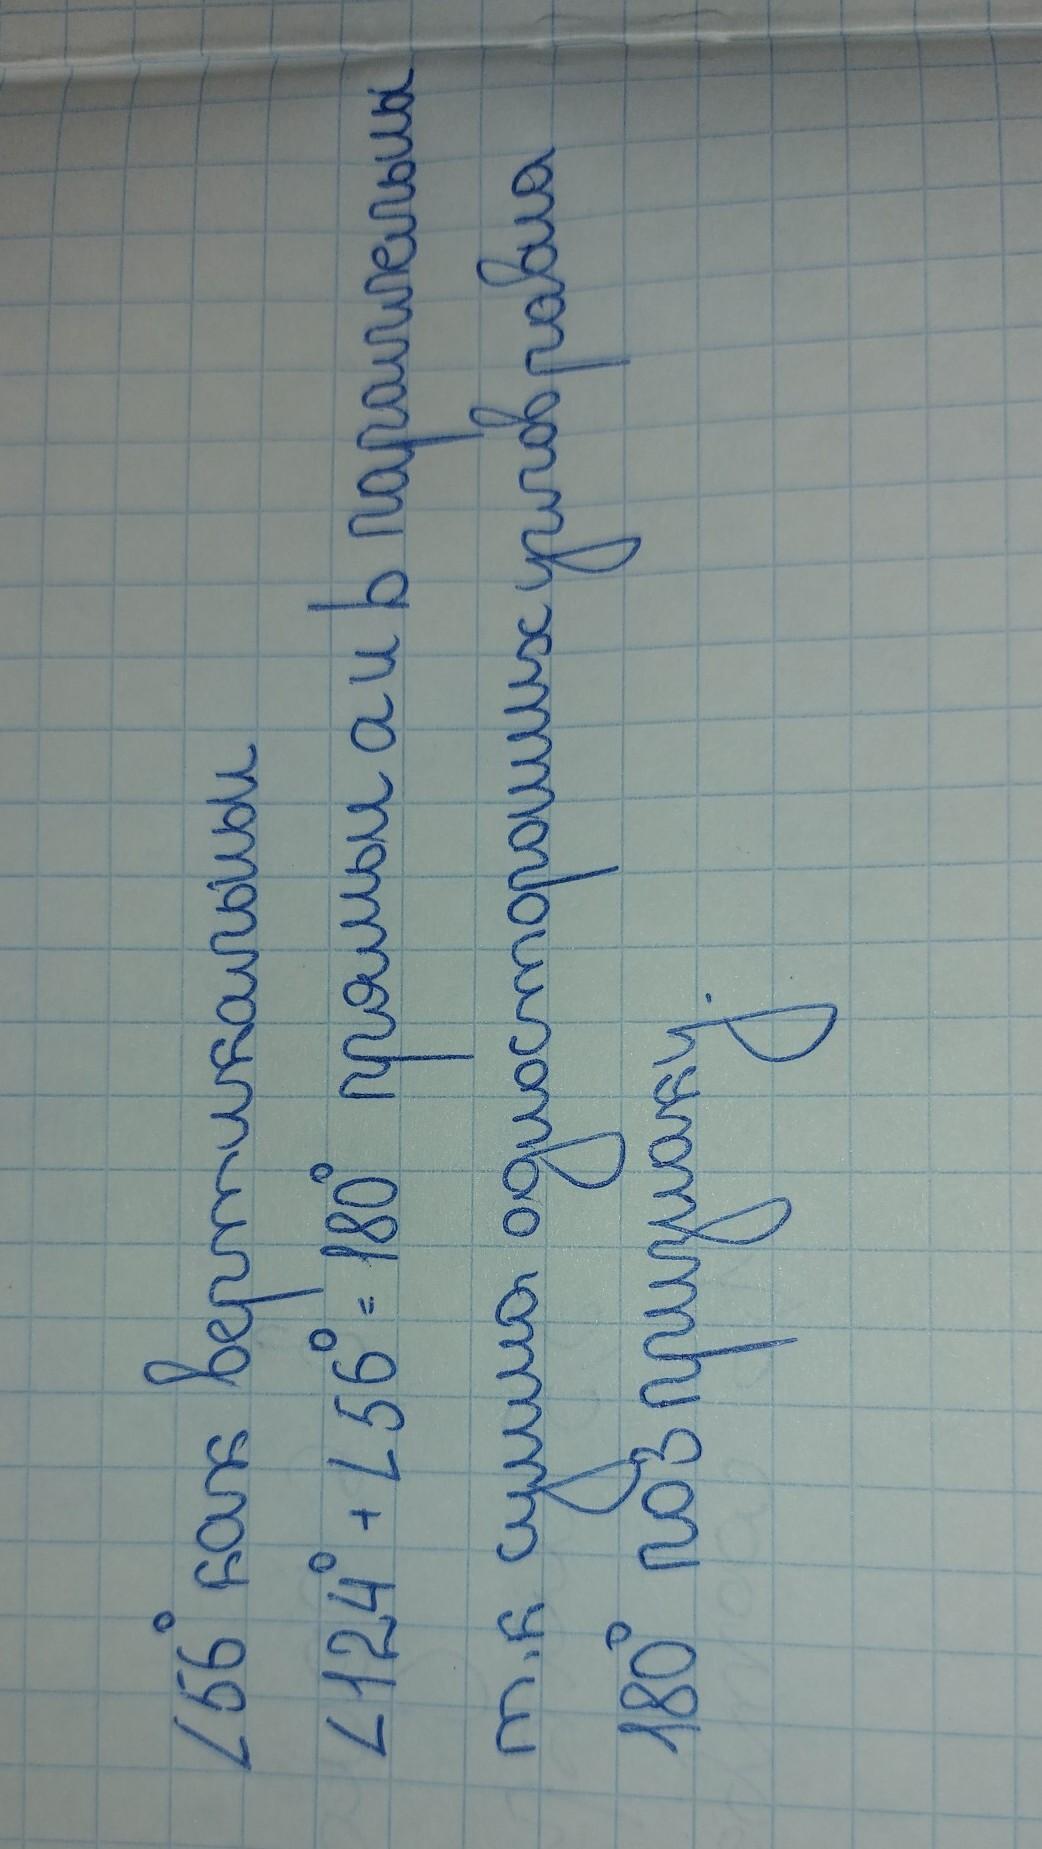 ∠56° как вертикальны
∠124° + ∠56° = 180° прямы а и b параллельны
т.к сумма односторонних углов равна
180° по 3 признаку.